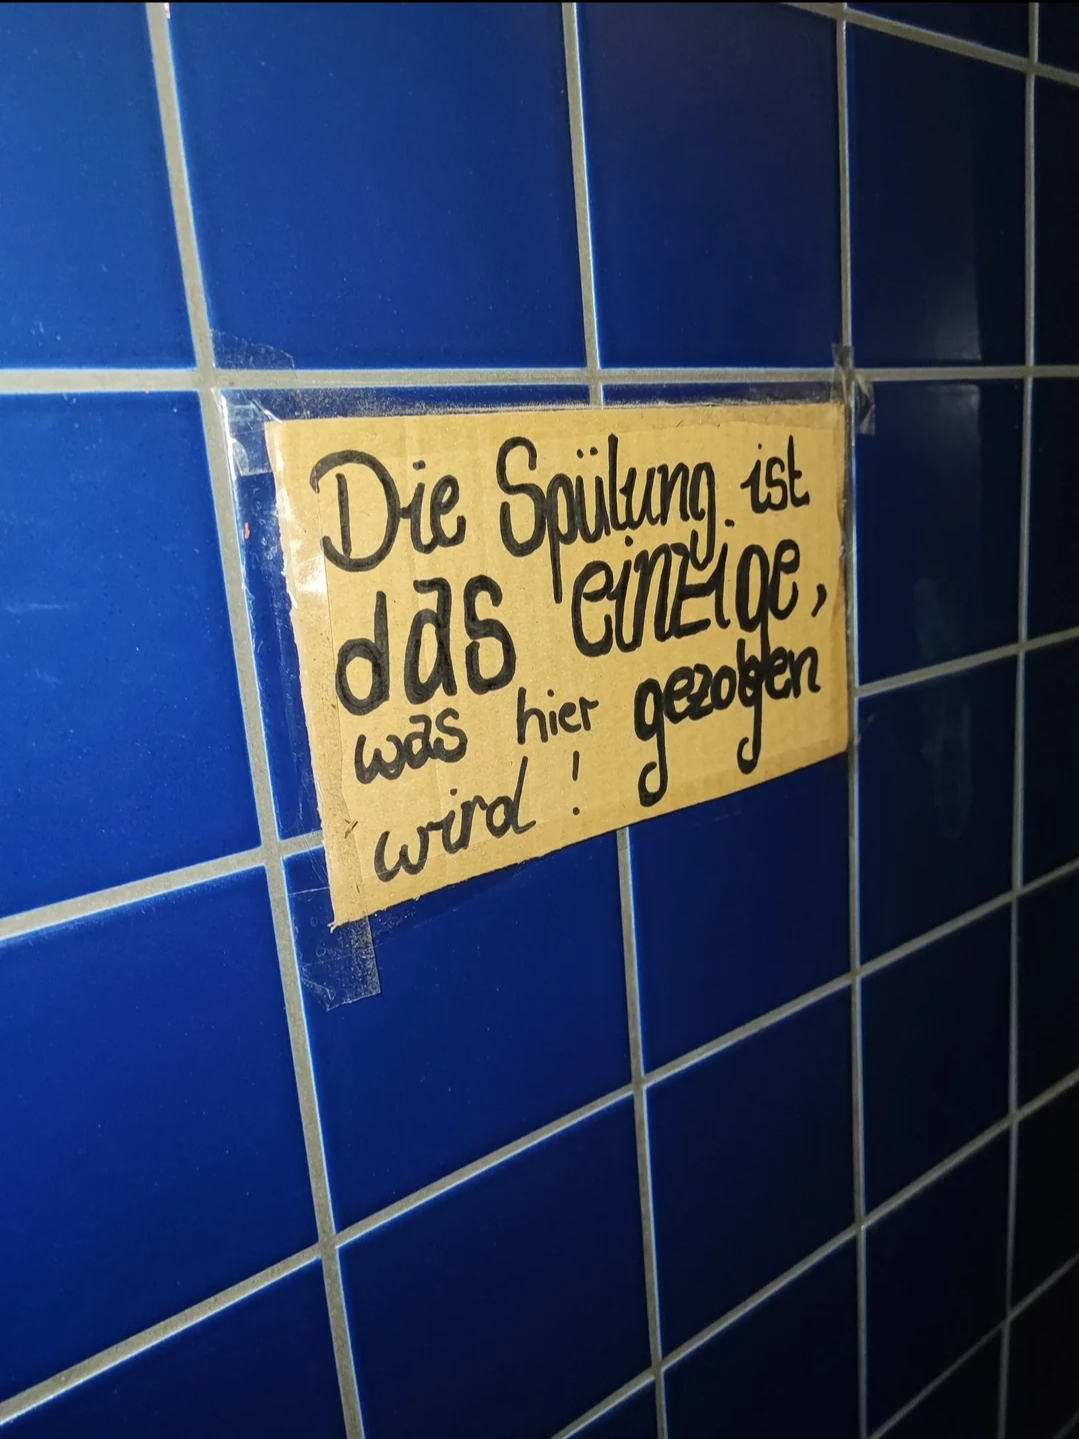 Die Spülung ist
das einzige,
was hier gezogen
wird!